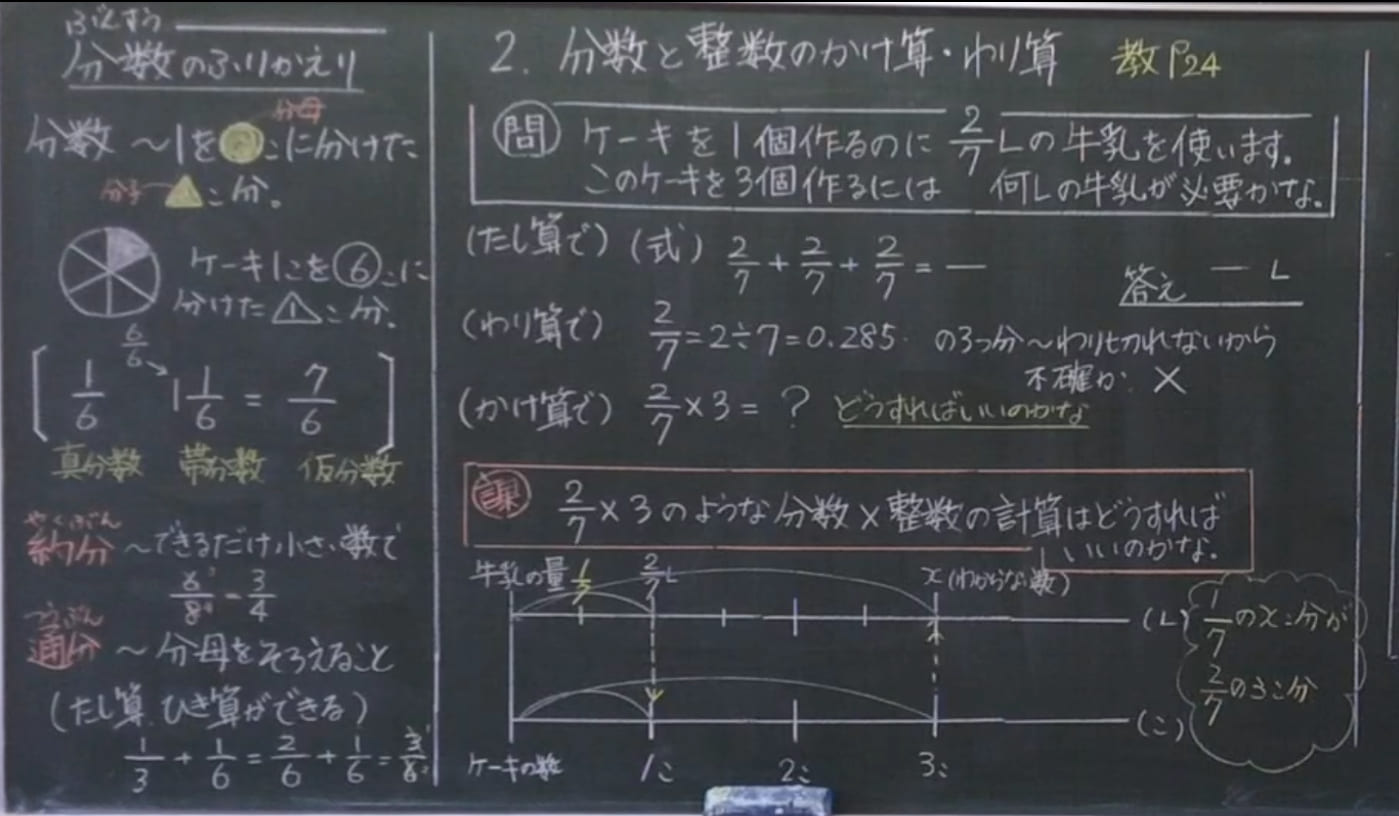 ぶんすう
分数のふりかえり
分母
分数 ～1を●こに分けた
分子 ▲こ分。
ケーキ1こを⑥こに
分けた△1こ分。
6/6
[ 1/6 1 1/6 = 7/6 ]
真分数 帯分数 仮分数
やくぶん
約分 ～できるだけ小さい数で
6/8 = 3/4
つうぶん
通分 ～分母をそろえること
(たし算、ひき算ができる)
1/3 + 1/6 = 2/6 + 1/6 = 3/6
2. 分数と整数のかけ算・わり算 教P24
問 ケーキを1個作るのに 2/7 Lの牛乳を使います。
このケーキを3個作るには 何Lの牛乳が必要かな。
(たし算で) (式) 2/7 + 2/7 + 2/7 = ―
答え ― L
(わり算で) 2/7 = 2÷7 = 0.285 の3つ分～わり切れないから
不確か ×
(かけ算で) 2/7 × 3 = ? どうすればいいのかな
課 2/7 × 3 のような分数×整数の計算はどうすれば
いいのかな。
牛乳の量 1/7 2/7 L x(わからない数)
(L)
(こ)
ケーキの数 1こ 2こ 3こ
1/7 のxこ分が
2/7 の3こ分